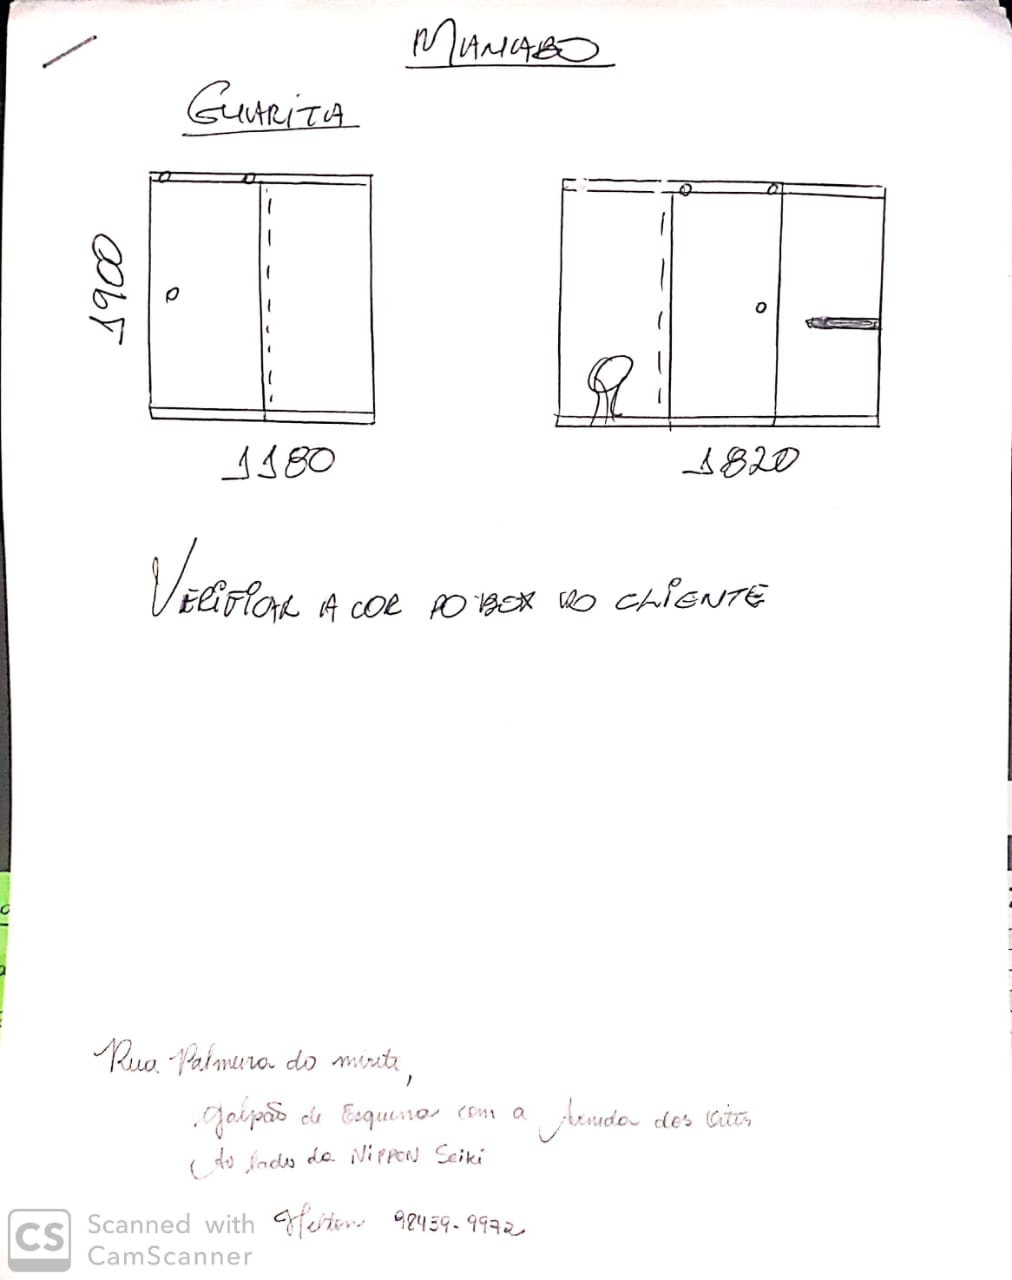 MAMABO
GUARITA
1900
1180
1820
VERIFICAR A COR DO BOX NO CLIENTE
Rua Palmeira do miriti,
galpão de Esquina com a Avenida dos Oitis
Ao lado da NIPPON Seiki
98459-9972
CS Scanned with
CamScanner